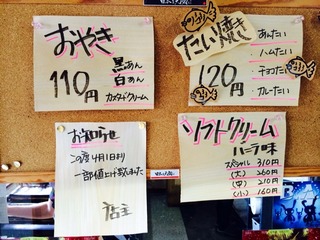 おやき
110円
黒あん
白あん
カスタードクリーム
たい焼き
120円
あんたい
ハムたい
チョコたい
カレーたい
お知らせ
この度4月1日より
一部値上げ致しました
店主
ソフトクリーム
バニラ味
スペシャル 310円
(大) 260円
(中) 210円
(小) 160円